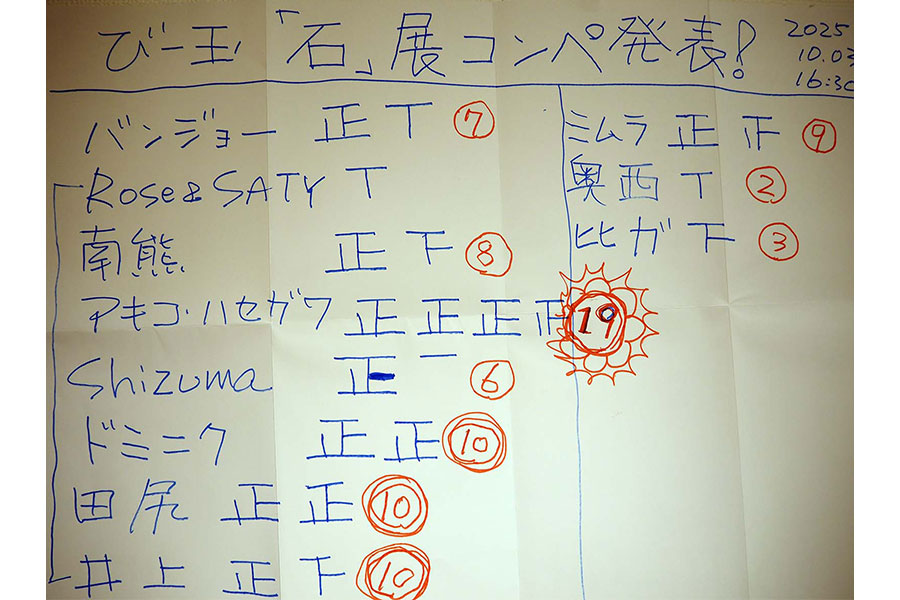 びー玉「石」展コンペ発表!
2025
10.03
16:30
バンジョー 正 T ⑦
Rose & SATY T
南熊 正 下 ⑧
アキコ・ハセガワ 正 正 正 正 19
Shizuma 正 一 ⑥
ドミニク 正 正 ⑩
田尻 正 正 ⑩
井上 正 下 ⑩
ミムラ 正 正 ⑨
奥西 T ②
比ガ 下 ③